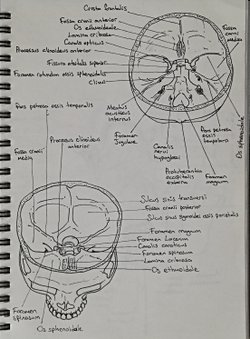 Crista frontalis
Fossa cranii anterior
Os ethmoidale
Lamina cribrosa
Canalis opticus
Processus clinoideus anterior
Fissura orbitalis superior
Foramen rotundum ossis sphenoidalis
clivus
Fossa cranii media
Os sphenoidale
Pars petrosa ossis temporalis
Foramen magnum
Protuberantia occipitalis externa
Canalis nervi hypoglossi
Foramen jugulare
Meatus acusticus internus
Pars petrosa ossis temporalis
Processus clinoideus anterior
Fossa cranii media
Sulcus sinus transversi
Fossa cranii posterior
Sulcus sinus sigmoidei ossis parietalis
Foramen magnum
Foramen lacerum
Canalis caroticus
Foramen spinosum
Lamina cribrosa
Os ethmoidale
Foramen spinosum
Os sphenoidale